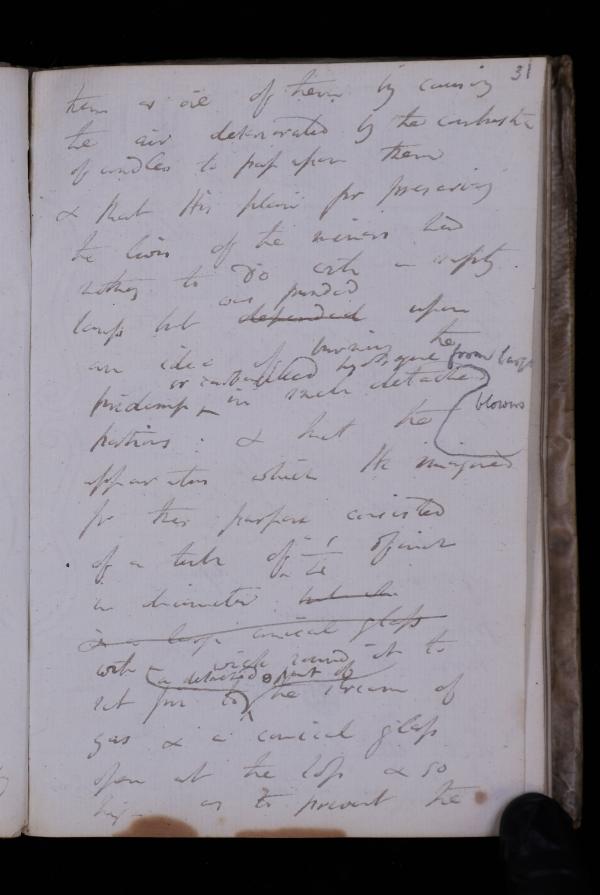 31
them or oil of them by causing
the air deteriorated by the combustion
of candles to pass upon them
& that His plan for preserving
the lives of the miners had
nothing to do with a safety
was founded
lamp but depended upon
an idea of burning the
or carburetted hydrogene from large
firedamp in such detached
blowers
portions : & that the
apparatus which He imagined
for this purpose consisted
of a tube of 1/ of inch
in diameter
in a large conical glass
with wick round it to
a detached part of
set fire to the stream of
gas & a conical glass
open at the top & so
high as to prevent the